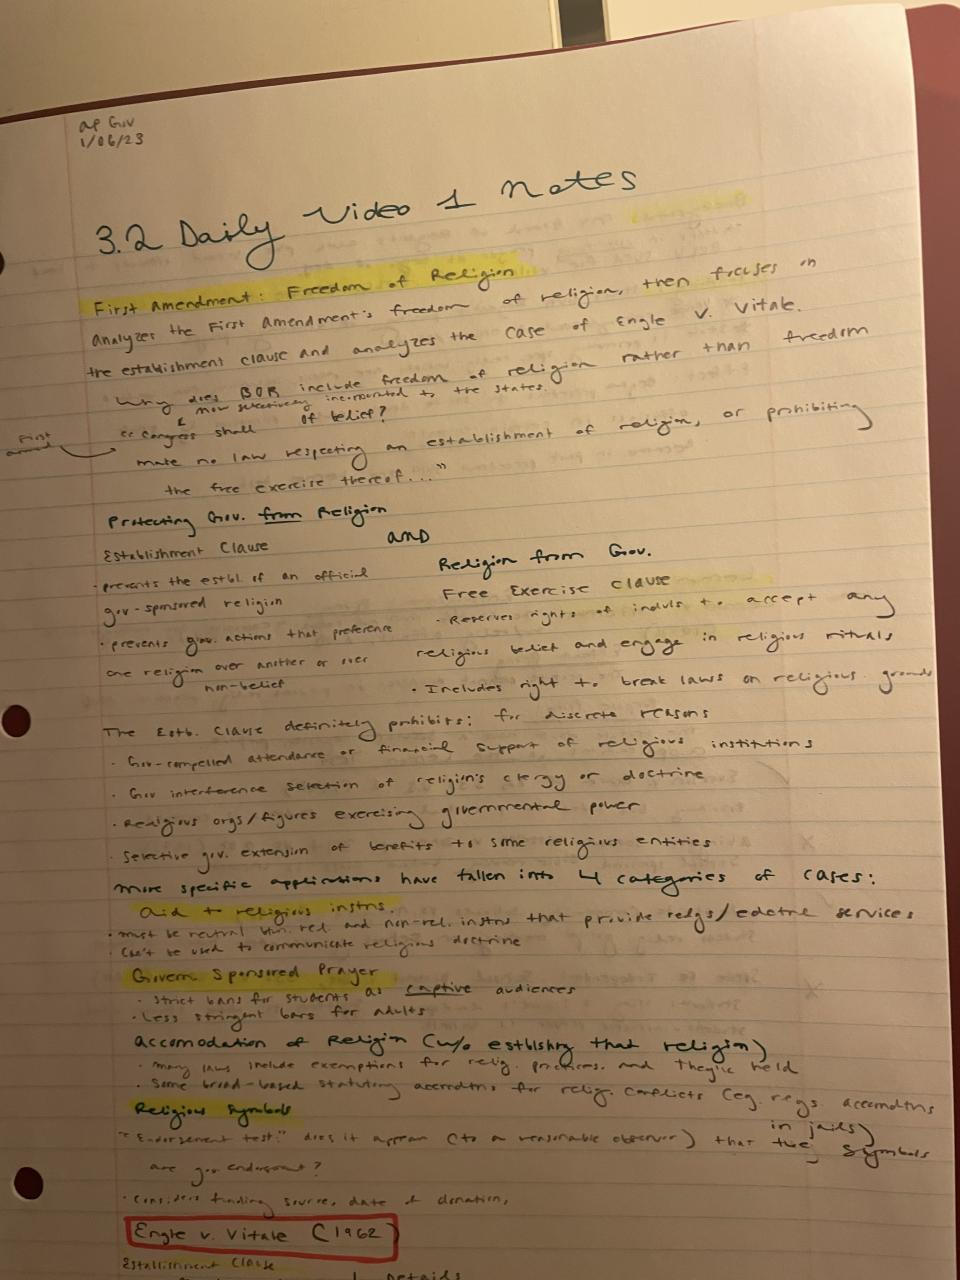 AP Gov
1/06/23
3.2 Daily Video 1 Notes
First Amendment: Freedom of Religion
Analyzes the First Amendment's freedom of religion, then focuses on
the establishment clause and analyzes the case of Engle v. Vitale.
Why does BOR include freedom of religion rather than freedom
of belief?
now selectively incorporated to the states.
First
"Congress shall
make no law respecting an establishment of religion, or prohibiting
the free exercise thereof..."
Protecting Gov. from Religion
AND
Religion from Gov.
Establishment Clause
• prevents the estbl. of an official
gov-sponsored religion
• prevents gov. actions that preference
one religion over another or over
non-belief
Free Exercise Clause
• Reserves rights of indvls to accept any
religious belief and engage in religious rituals
• Includes right to break laws on religious grounds
for discrete reasons
The Estb. Clause definitely prohibits:
• Gov-compelled attendance or financial support of religious institutions
• Gov interference selection of religion's clergy or doctrine
• Religious orgs/figures exercising governmental power
• Selective gov. extension of benefits to some religious entities
More specific applications have fallen into 4 categories of cases:
Aid to religious instns.
• must be neutral btwn. rel. and non-rel. instns that provide services
• Can't be used to communicate religious doctrine
Govern. Sponsored Prayer
• Strict bans for students as captive audiences
• Less stringent bars for adults
Accomodation of Religion (w/o estblshng that religion)
• Many laws include exemptions for relig. practices. and held
• Some broad-based statutory for relig. conflicts (eg. regs.
in jails)
Religious Symbols
"Endorsement test:" does it appear (to a reasonable observer) that the symbols
are gov endorsement?
• Considers funding source, date of donation,
Engle v. Vitale (1962)
Establishment Clause
Details